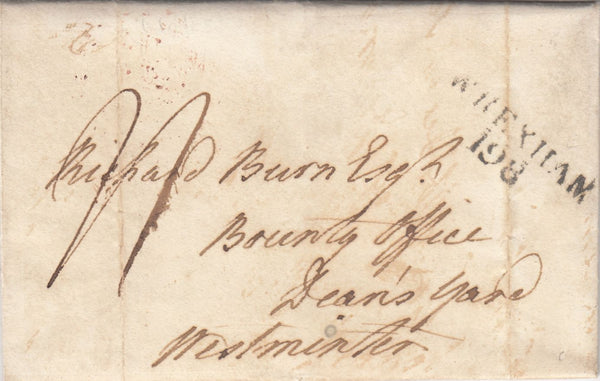 WREXHAM
198
Richard Burn Esqr.
Bounty Office
Dean's Yard
Westminster